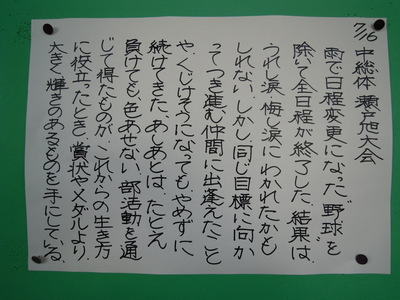 7/16 中総体 瀬戸地大会
雨で日程変更になった“野球”を
除いて全日程が終了した。結果は、
うれし涙、悔し涙にわかれたかも
しれない。しかし、同じ目標に向か
ってつき進む仲間に出逢えたこと
や、くじけそうになっても、やめずに
続けてきた、あしあとは、たとえ
負けても色あせない。部活動を通
じて得たものが、これからの生き方
に役立ったとき、賞状やメダルより、
大きく輝きのあるものを手にしている。